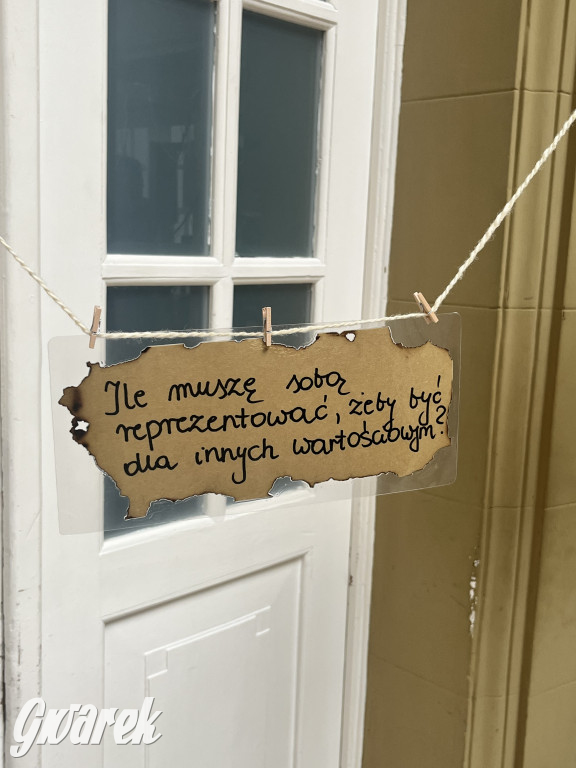 Ile muszę sobą
reprezentować, żeby być
dla innych wartościowym?
Gwarek